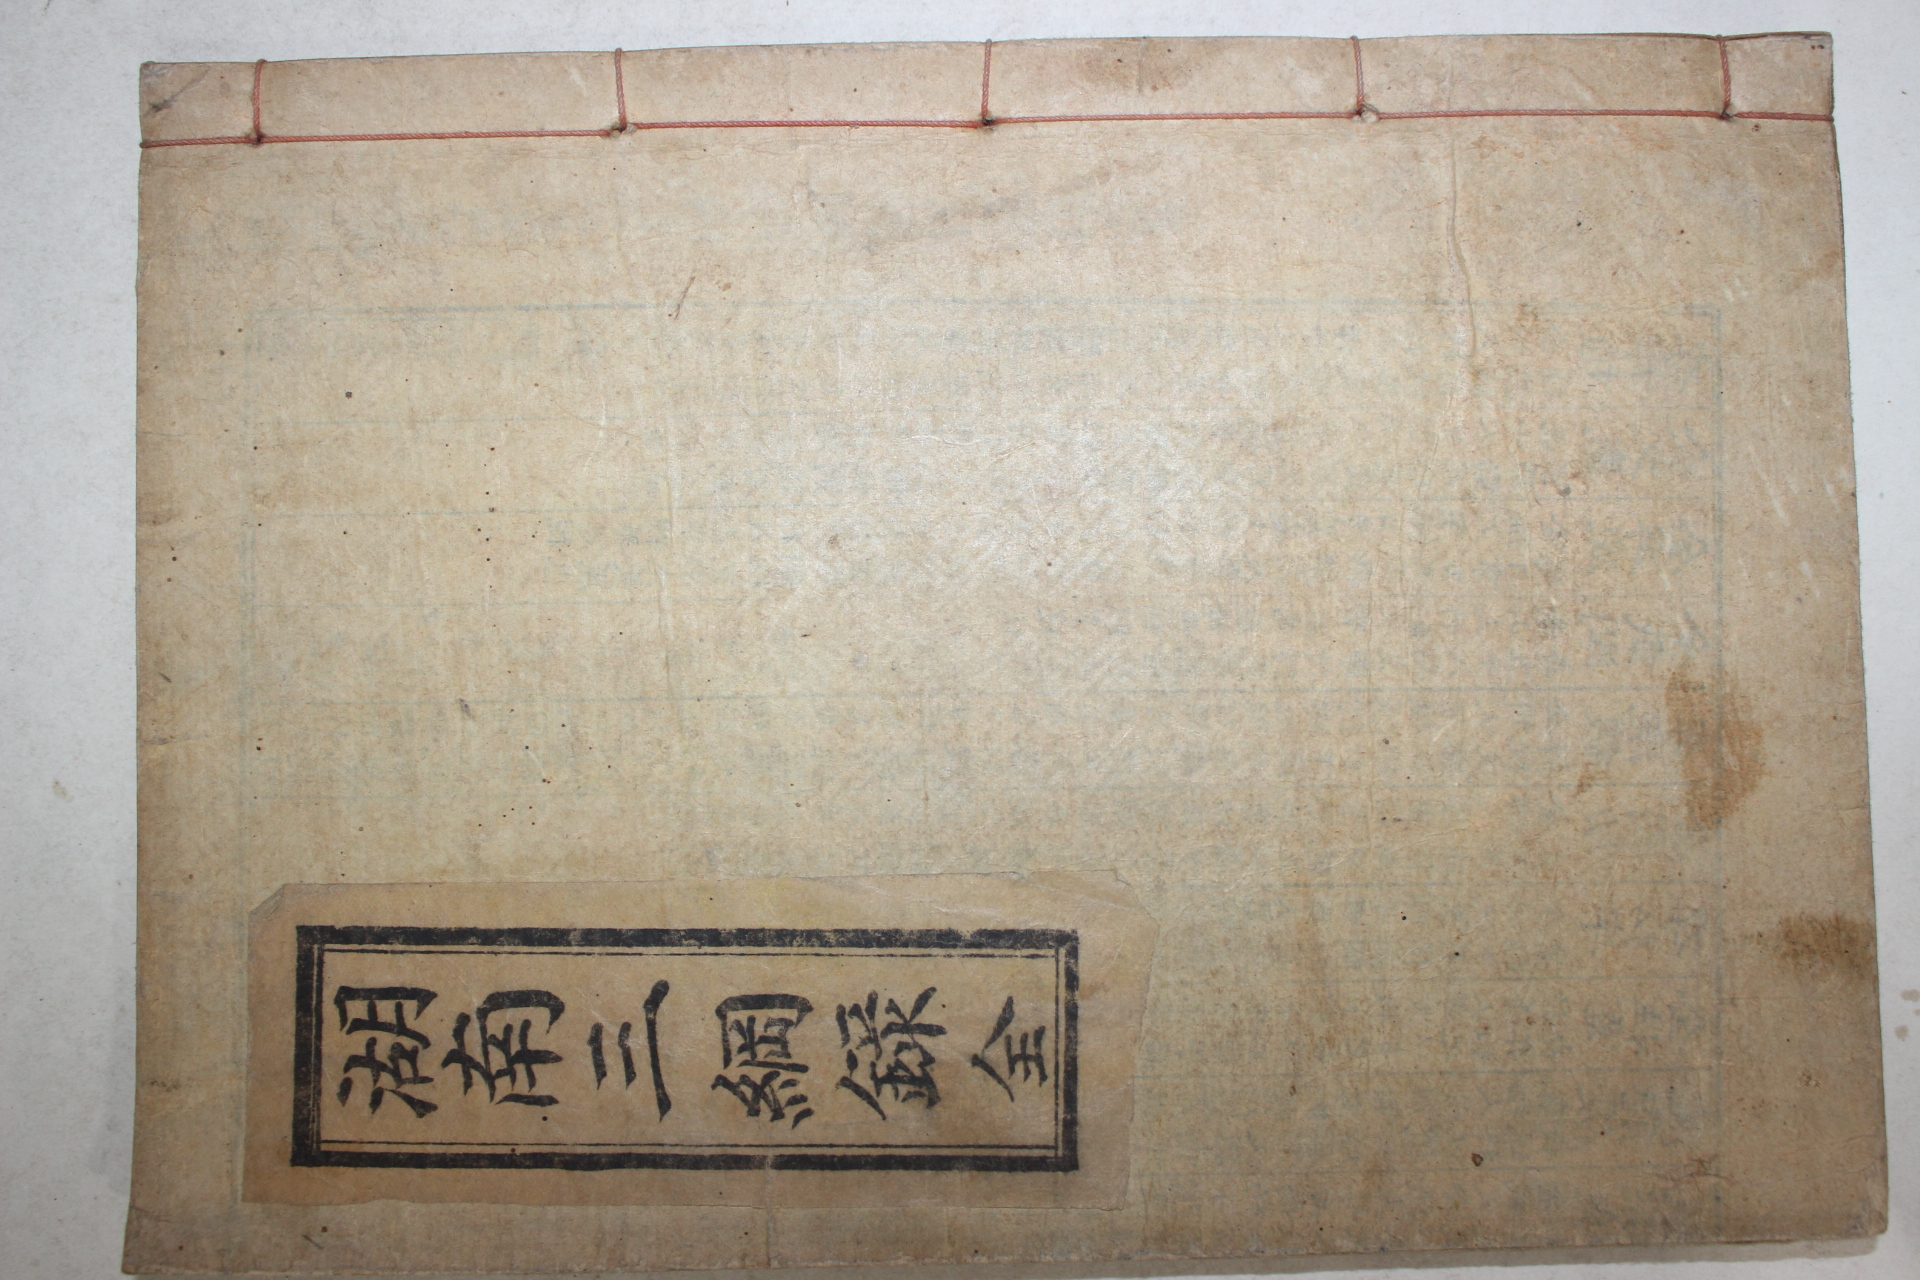 湖南三綱錄 全